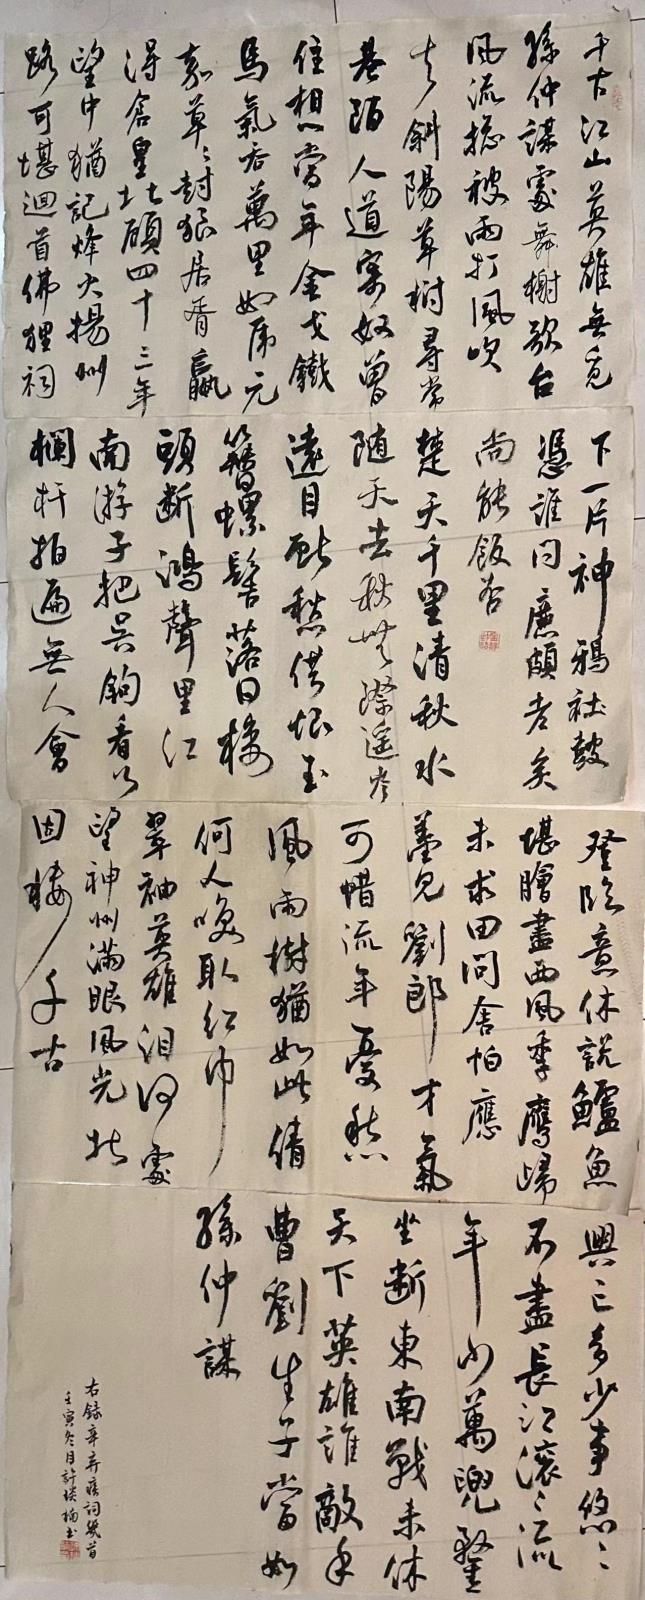 千古江山英雄無覓
孫仲謀處舞榭歌台
風流總被雨打風吹
去斜陽草樹尋常
巷陌人道寄奴曾
住想當年金戈鐵
馬氣吞萬里如虎元
嘉草〻封狼居胥贏
得倉皇北顧四十三年
望中猶記烽火揚州
路可堪迴首佛狸祠
下一片神鴉社鼓
憑誰問廉頗老矣
尚能飯否
楚天千里清秋水
隨天去秋無際遥岑
遠目獻愁供恨玉
簪螺髻落日樓
頭斷鴻聲里江
南游子把吳鉤看了
欄杆拍遍無人會
登臨意休說鱸魚
堪膾盡西風季鷹歸
未求田問舍怕應
羞見劉郎才氣
可惜流年憂愁
風雨樹猶如此倩
何人喚取紅巾
翠袖英雄淚何處
望神州滿眼風光北
固樓千古
興亡多少事悠〻
不盡長江滾〻流
年少萬兜鍪
坐斷東南戰未休
天下英雄誰敵手
曹劉生子當如
孫仲謀
右錄辛弃疾詞幾首
壬寅冬月許 楠書